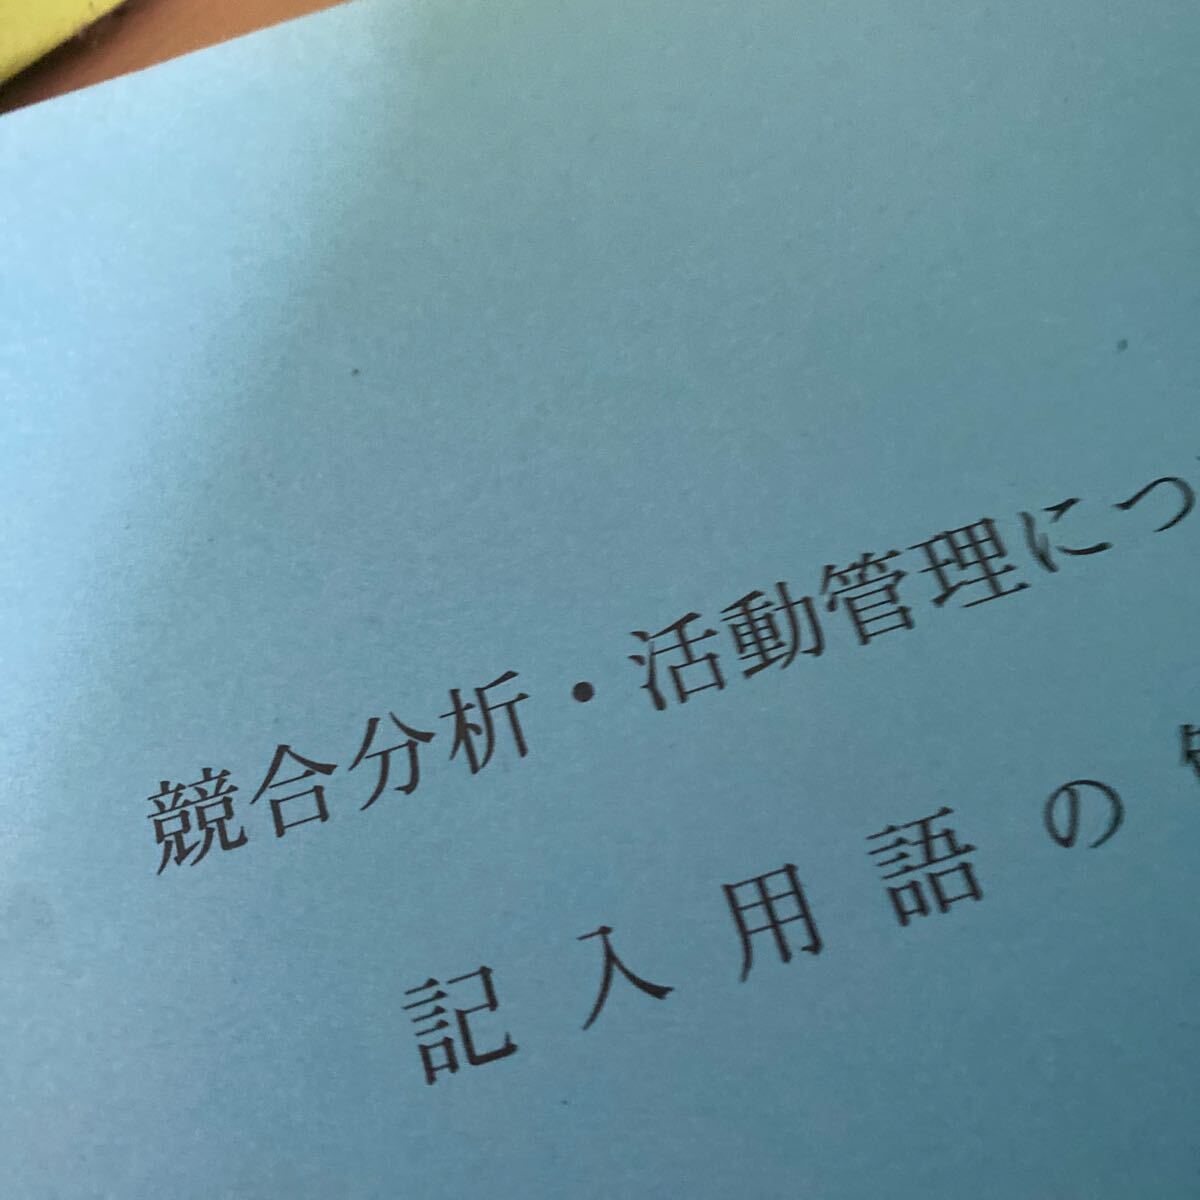 競合分析・活動管理につ
記入用語の